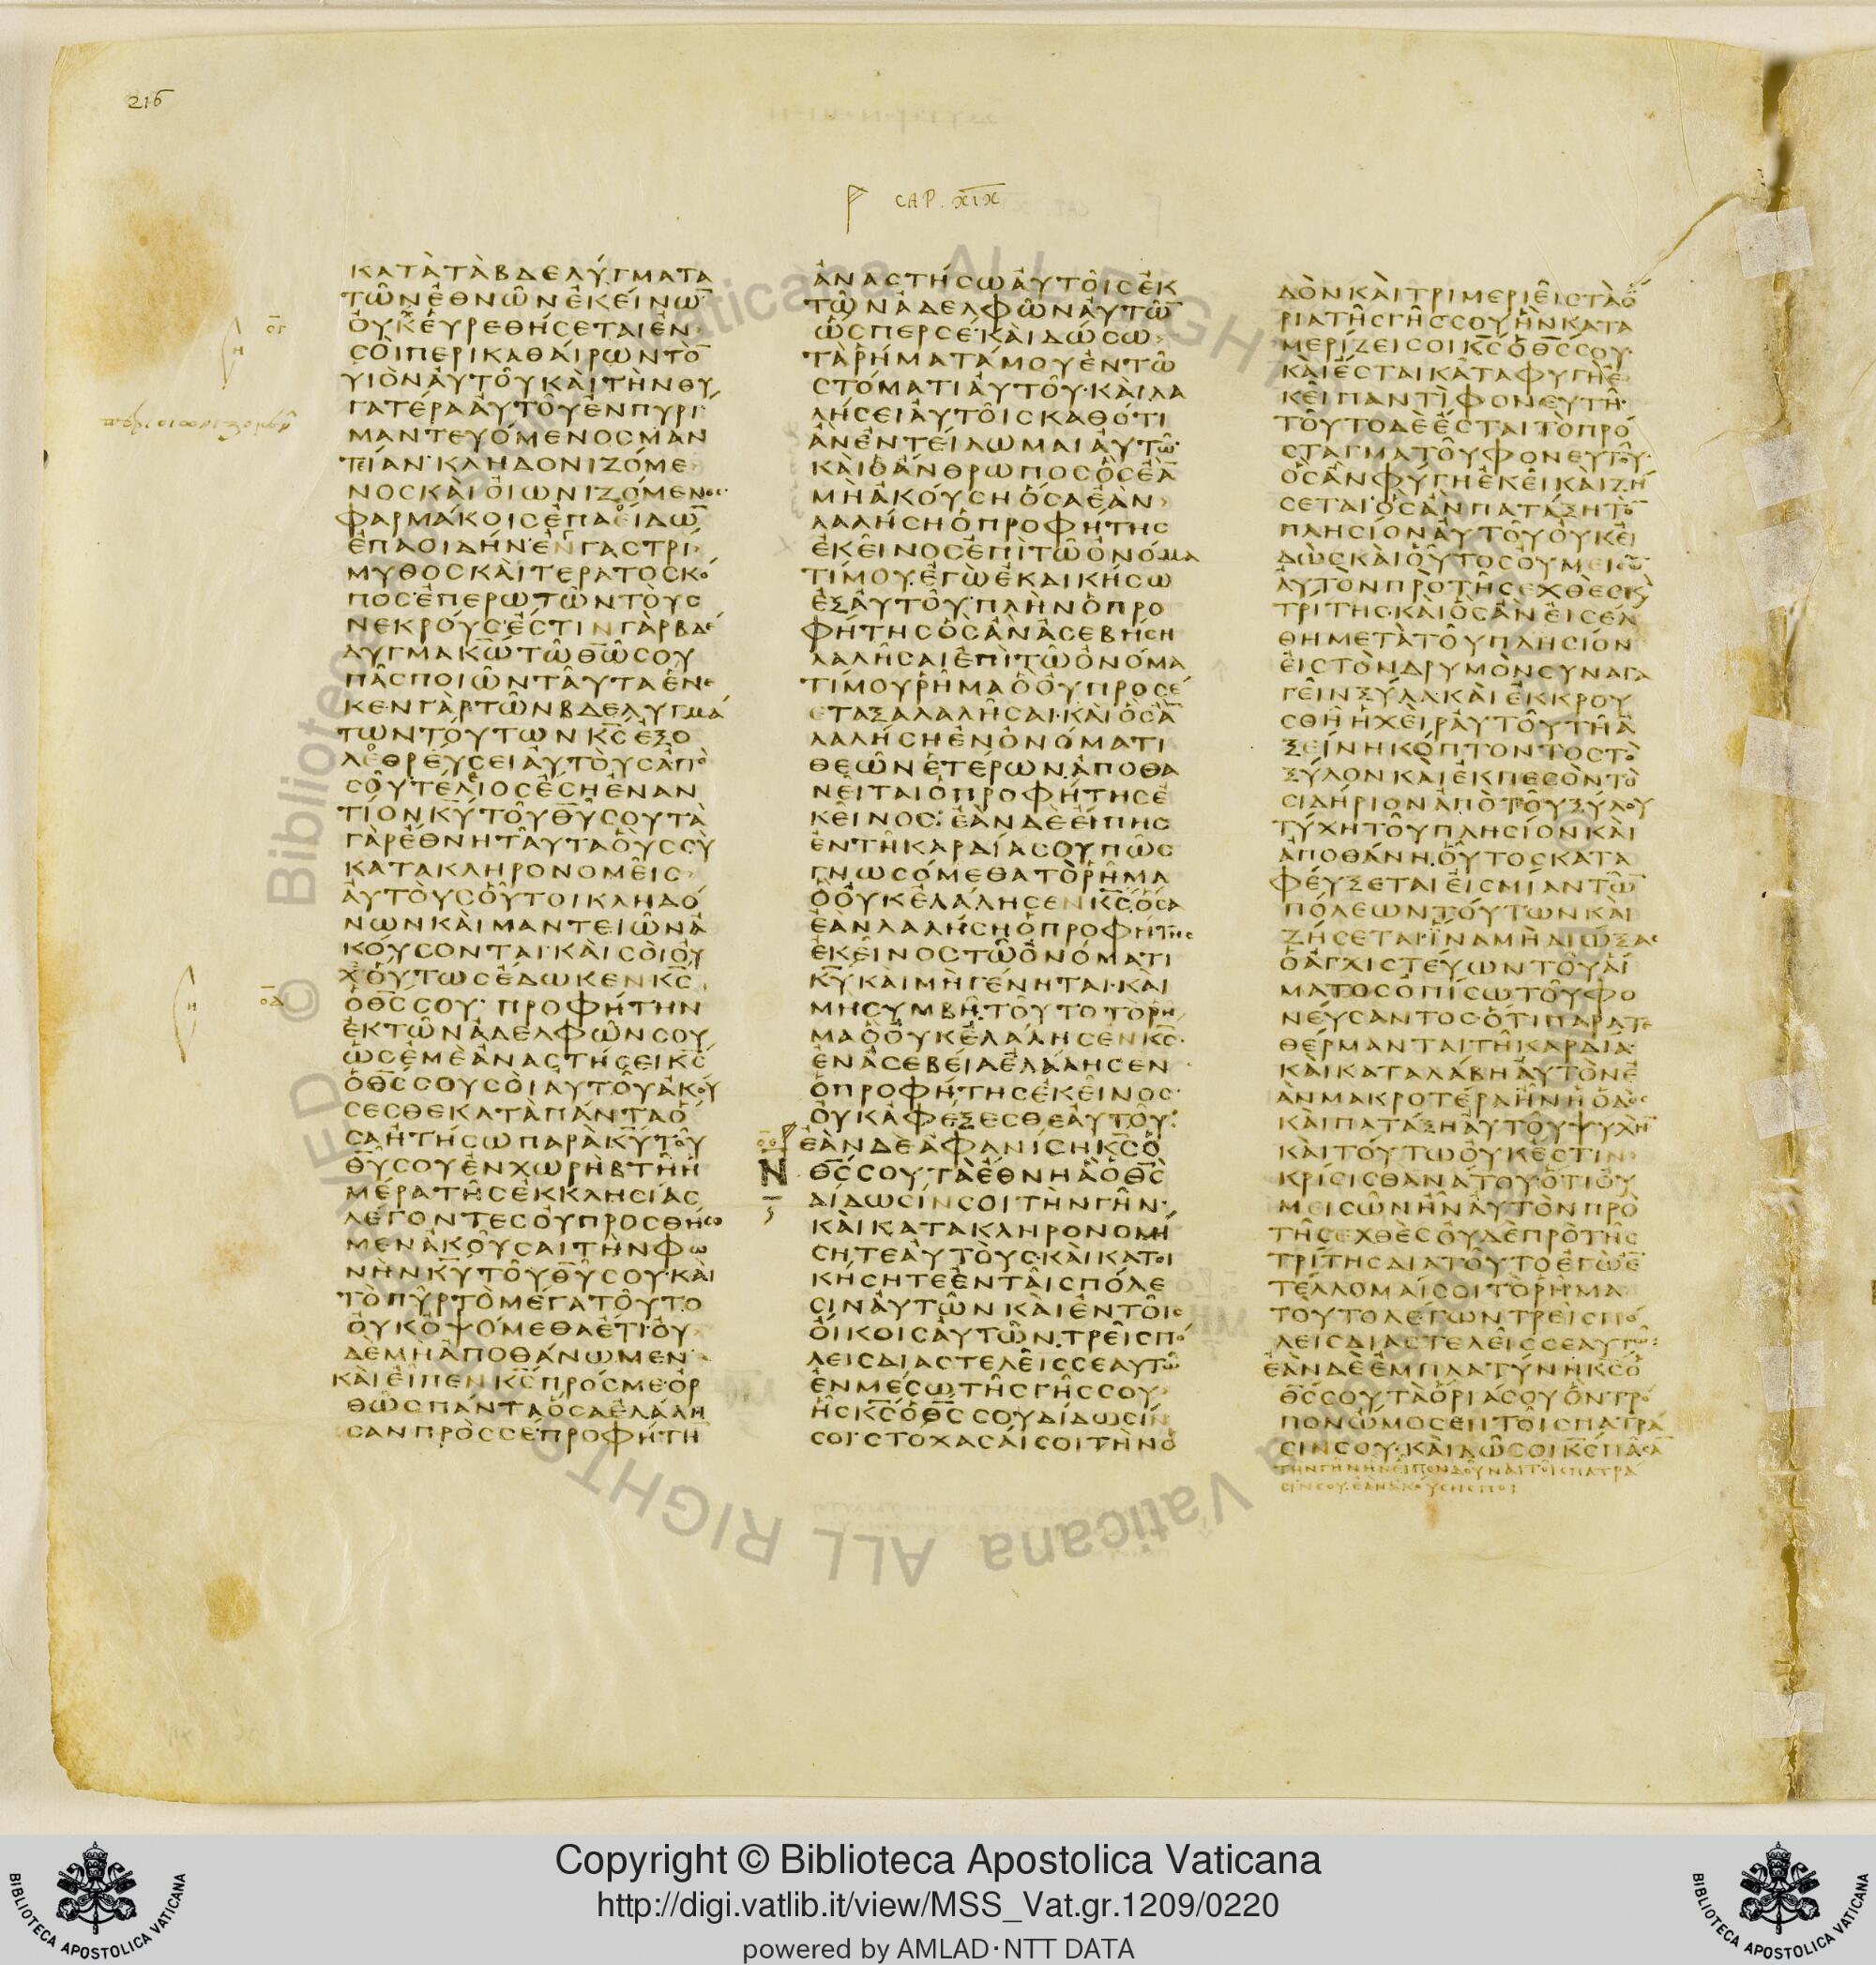 216
CAP. XIX
ΚΑΤΑΤΑΒΔΕΛΥΓΜΑΤΑ
ΤΩΝΕΘΝΩΝΕΚΕΙΝΩ̅
ΟΥΧΕΥΡΕΘΗΣΕΤΑΙΕΝ
ΣΟΙΠΕΡΙΚΑΘΑΙΡΩΝΤΟ̅
ΥΙΟΝΑΥΤΟΥΚΑΙΤΗΝΘΥ
ΓΑΤΕΡΑΑΥΤΟΥΕΝΠΥΡΙ
ΜΑΝΤΕΥΟΜΕΝΟΣΜΑΝ
ΤΕΙΑΝ·ΚΛΗΔΟΝΙΖΟΜΕ
ΝΟΣΚΑΙΟΙΩΝΙΖΟΜΕΝΟΣ·
ΦΑΡΜΑΚΟΙΣΕΠΑΕΙΔΩ̅
ΕΠΑΟΙΔΗΝ·ΕΝΓΑΣΤΡΙ
ΜΥΘΟΣΚΑΙΤΕΡΑΤΟΣΚΟ
ΠΟΣ·ΕΠΕΡΩΤΩΝΤΟΥΣ
ΝΕΚΡΟΥΣ·ΕΣΤΙΝΓΑΡΒΔΕ
ΛΥΓΜΑΚ̅Ω̅ΤΩΘ̅Ω̅ΣΟΥ
ΠΑΣΠΟΙΩΝΤΑΥΤΑΕΝΕ
ΚΕΝΓΑΡΤΩΝΒΔΕΛΥΓΜΑ
ΤΩΝΤΟΥΤΩΝΚ̅Σ̅ΕΞΟ
ΛΕΘΡΕΥΣΕΙΑΥΤΟΥΣΑΠΟ
ΣΟΥΤΕΛΕΙΟΣΕΣΗΕΝΑΝ
ΤΙΟΝΚ̅Υ̅ΤΟΥΘ̅Υ̅ΣΟΥΤΑ
ΓΑΡΕΘΝΗΤΑΥΤΑΟΥΣΣΥ
ΚΑΤΑΚΛΗΡΟΝΟΜΕΙΣ
ΑΥΤΟΥΣΟΥΤΟΙΚΛΗΔΟ
ΝΩΝΚΑΙΜΑΝΤΕΙΩΝΑ
ΚΟΥΣΟΝΤΑΙ·ΚΑΙΣΟΙΟΥ
ΧΟΥΤΩΣΕΔΩΚΕΝΚ̅Σ̅
ΟΘ̅Σ̅ΣΟΥ·ΠΡΟΦΗΤΗΝ
ΕΚΤΩΝΑΔΕΛΦΩΝΣΟΥ
ΩΣΕΜΕΑΝΑΣΤΗΣΕΙΚ̅Σ̅
ΟΘ̅Σ̅ΣΟΥΣΟΙΑΥΤΟΥΑΚΟΥ
ΣΕΣΘΕΚΑΤΑΠΑΝΤΑΟ
ΣΑΗΤΗΣΩΠΑΡΑΚ̅Υ̅ΤΟΥ
Θ̅Υ̅ΣΟΥΕΝΧΩΡΗΒΤΗΗ
ΜΕΡΑΤΗΣΕΚΚΛΗΣΙΑΣ
ΛΕΓΟΝΤΕΣΟΥΠΡΟΣΘΗΣΟ
ΜΕΝΑΚΟΥΣΑΙΤΗΝΦΩ
ΝΗΝΚ̅Υ̅ΤΟΥΘ̅Υ̅ΣΟΥ·ΚΑΙ
ΤΟΠΥΡΤΟΜΕΓΑΤΟΥΤΟ
ΟΥΚΟΨΟΜΕΘΑΕΤΙ·ΟΥ
ΔΕΜΗΑΠΟΘΑΝΩΜΕΝ
ΚΑΙΕΙΠΕΝΚ̅Σ̅ΠΡΟΣΜΕ·ΟΡ
ΘΩΣΠΑΝΤΑΟΣΑΕΛΑΛΗ
ΣΑΝΠΡΟΣΣΕ·ΠΡΟΦΗΤΗ̅
ΑΝΑΣΤΗΣΩΑΥΤΟΙΣΕΚ
ΤΩΝΑΔΕΛΦΩΝΑΥΤΩ̅
ΩΣΠΕΡΣΕ·ΚΑΙΔΩΣΩ
ΤΑΡΗΜΑΤΑΜΟΥΕΝΤΩ
ΣΤΟΜΑΤΙΑΥΤΟΥ·ΚΑΙΛΑ
ΛΗΣΕΙΑΥΤΟΙΣΚΑΘΟΤΙ
ΑΝΕΝΤΕΙΛΩΜΑΙΑΥΤΩ·
ΚΑΙΟΑΝΘΡΩΠΟΣΟΣΕΑ̅
ΜΗΑΚΟΥΣΗΟΣΑΕΑΝ
ΛΑΛΗΣΗΟΠΡΟΦΗΤΗΣ
ΕΚΕΙΝΟΣΕΠΙΤΩΟΝΟΜΑ
ΤΙΜΟΥ·ΕΓΩΕΚΔΙΚΗΣΩ
ΕΞΑΥΤΟΥ·ΠΛΗΝΟΠΡΟ
ΦΗΤΗΣΟΣΑΝΑΣΕΒΗΣΗ
ΛΑΛΗΣΑΙΕΠΙΤΩΟΝΟΜΑ
ΤΙΜΟΥΡΗΜΑΟΟΥΠΡΟΣΕ
ΤΑΞΑΛΑΛΗΣΑΙ·ΚΑΙΟΣΑ̅
ΛΑΛΗΣΗΕΝΟΝΟΜΑΤΙ
ΘΕΩΝΕΤΕΡΩΝ·ΑΠΟΘΑ
ΝΕΙΤΑΙΟΠΡΟΦΗΤΗΣΕ
ΚΕΙΝΟΣ·ΕΑΝΔΕΕΙΠΗΣ
ΕΝΤΗΚΑΡΔΙΑΣΟΥΠΩΣ
ΓΝΩΣΟΜΕΘΑΤΟΡΗΜΑ
ΟΟΥΚΕΛΑΛΗΣΕΝΚ̅Σ̅·ΟΣΑ
ΕΑΝΛΑΛΗΣΗΟΠΡΟΦΗΤΗΣ
ΕΚΕΙΝΟΣΤΩΟΝΟΜΑΤΙ
Κ̅Υ̅ΚΑΙΜΗΓΕΝΗΤΑΙ·ΚΑΙ
ΜΗΣΥΜΒΗ·ΤΟΥΤΟΤΟΡΗ
ΜΑΟΟΥΚΕΛΑΛΗΣΕΝΚ̅Σ̅·
ΕΝΑΣΕΒΕΙΑΕΛΑΛΗΣΕΝ
ΟΠΡΟΦΗΤΗΣΕΚΕΙΝΟΣ·
ΟΥΚΑΦΕΞΕΣΘΕΑΥΤΟΥ·
ΕΑΝΔΕΑΦΑΝΙΣΗΚ̅Σ̅Ο
Ν Θ̅Σ̅ΣΟΥΤΑΕΘΝΗΑΟΘ̅Σ̅
ΔΙΔΩΣΙΝΣΟΙΤΗΝΓΗΝ·
ΚΑΙΚΑΤΑΚΛΗΡΟΝΟΜΗ
ΣΗΤΕΑΥΤΟΥΣ·ΚΑΙΚΑΤΟΙ
ΚΗΣΗΤΕΕΝΤΑΙΣΠΟΛΕ
ΣΙΝΑΥΤΩΝΚΑΙΕΝΤΟΙΣ
ΟΙΚΟΙΣΑΥΤΩΝ·ΤΡΕΙΣΠΟ
ΛΕΙΣΔΙΑΣΤΕΛΕΙΣΣΕΑΥΤΩ
ΕΝΜΕΣΩΤΗΣΓΗΣΣΟΥ
ΗΣΚ̅Σ̅ΟΘ̅Σ̅ΣΟΥΔΙΔΩΣΙΝ
ΣΟΙ·ΣΤΟΧΑΣΑΙΣΟΙΤΗΝΟ
ΔΟΝΚΑΙΤΡΙΜΕΡΙΕΙΣΤΑΟ
ΡΙΑΤΗΣΓΗΣΣΟΥΗΝΚΑΤΑ
ΜΕΡΙΖΕΙΣΟΙΚ̅Σ̅ΟΘ̅Σ̅ΣΟΥ·
ΚΑΙΕΣΤΑΙΚΑΤΑΦΥΓΗΕ
ΚΕΙΠΑΝΤΙΦΟΝΕΥΤΗ·
ΤΟΥΤΟΔΕΕΣΤΑΙΤΟΠΡΟ
ΣΤΑΓΜΑΤΟΥΦΟΝΕΥΤΟΥ·
ΟΣΑΝΦΥΓΗΕΚΕΙΚΑΙΖΗ
ΣΕΤΑΙ·ΟΣΑΝΠΑΤΑΞΗΤΟ̅
ΠΛΗΣΙΟΝΑΥΤΟΥΟΥΚΕΙ
ΔΩΣΚΑΙΟΥΤΟΣΟΥΜΕΙΣΩ̅
ΑΥΤΟΝΠΡΟΤΗΣΕΧΘΕΣΚΑΙ
ΤΡΙΤΗΣ·ΚΑΙΟΣΑΝΕΙΣΕΛ
ΘΗΜΕΤΑΤΟΥΠΛΗΣΙΟΝ
ΕΙΣΤΟΝΔΡΥΜΟΝΣΥΝΑΓΑ
ΓΕΙΝΞΥΛΑ·ΚΑΙΕΚΚΡΟΥ
ΣΘΗΗΧΕΙΡΑΥΤΟΥΤΗΑ
ΞΕΙΝΗΚΟΠΤΟΝΤΟΣΤΟ
ΞΥΛΟΝΚΑΙΕΚΠΕΣΟΝΤΟ
ΣΙΔΗΡΙΟΝΑΠΟΤΟΥΞΥΛΟΥ
ΤΥΧΗΤΟΥΠΛΗΣΙΟΝΚΑΙ
ΑΠΟΘΑΝΗ·ΟΥΤΟΣΚΑΤΑ
ΦΕΥΞΕΤΑΙΕΙΣΜΙΑΝΤΩ̅
ΠΟΛΕΩΝΤΟΥΤΩΝΚΑΙ
ΖΗΣΕΤΑΙ·ΙΝΑΜΗΔΙΩΞΑΣ
ΟΑΓΧΙΣΤΕΥΩΝΤΟΥΑΙ
ΜΑΤΟΣΟΠΙΣΩΤΟΥΦΟ
ΝΕΥΣΑΝΤΟΣ·ΟΤΙΠΑΡΑΤΕ
ΘΕΡΜΑΝΤΑΙΤΗΚΑΡΔΙΑ·
ΚΑΙΚΑΤΑΛΑΒΗΑΥΤΟΝΕ
ΑΝΜΑΚΡΟΤΕΡΑΗΝΗΟΔΟΣ
ΚΑΙΠΑΤΑΞΗΑΥΤΟΥΨΥΧΗ̅
ΚΑΙΤΟΥΤΩΟΥΚΕΣΤΙΝ
ΚΡΙΣΙΣΘΑΝΑΤΟΥ·ΟΤΙΟΥ
ΜΕΙΣΩΝΗΝΑΥΤΟΝΠΡΟ
ΤΗΣΕΧΘΕΣΟΥΔΕΠΡΟΤΗΣ
ΤΡΙΤΗΣΔΙΑΤΟΥΤΟΕΓΩΕ̅
ΤΕΛΛΟΜΑΙΣΟΙΤΟΡΗΜΑ
ΤΟΥΤΟΛΕΓΩΝΤΡΕΙΣΠΟ
ΛΕΙΣΔΙΑΣΤΕΛΕΙΣΣΕΑΥΤΩ·
ΕΑΝΔΕΕΜΠΛΑΤΥΝΗΚ̅Σ̅Ο
Θ̅Σ̅ΣΟΥΤΑΟΡΙΑΣΟΥΟΝΤΡΟ
ΠΟΝΩΜΟΣΕΝΤΟΙΣΠΑΤΡΑ
ΣΙΝΣΟΥ·ΚΑΙΔΩΣΟΙΚ̅Σ̅ΠΑΣΑ̅
ΤΗΝΓΗΝΗΝΕΙΠΟΝΔΟΥΝΑΙΤΟΙΣΠΑΤΡΑ
ΣΙΝΣΟΥ·ΕΑΝΑΚΟΥΣΗΣΠΟΙ
Copyright © Biblioteca Apostolica Vaticana
http://digi.vatlib.it/view/MSS_Vat.gr.1209/0220
powered by AMLAD·NTT DATA
BIBLIOTECA APOSTOLICA VATICANA
BIBLIOTECA APOSTOLICA VATICANA